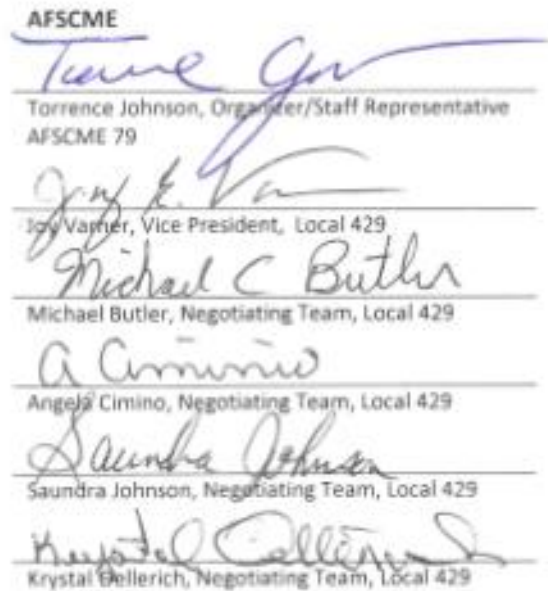 AFSCME
Torrence Johnson, Organizer/Staff Representative
AFSCME 79
Joy E. Var
Joy Varner, Vice President, Local 429
Michael C Butler
Michael Butler, Negotiating Team, Local 429
A Cimino
Angela Cimino, Negotiating Team, Local 429
Saundra Johnson
Saundra Johnson, Negotiating Team, Local 429
Krystal Dellerich
Krystal Dellerich, Negotiating Team, Local 429